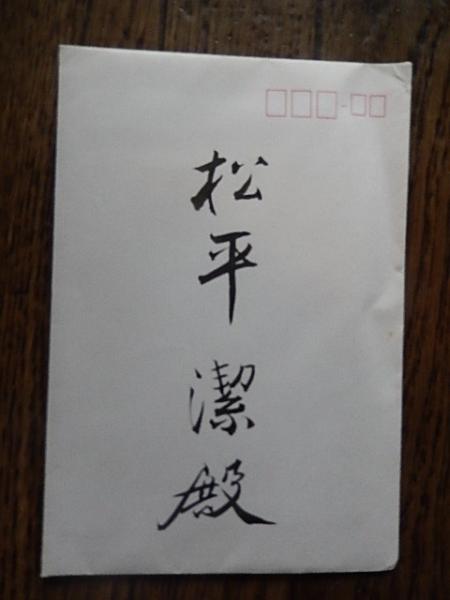 松平潔殿